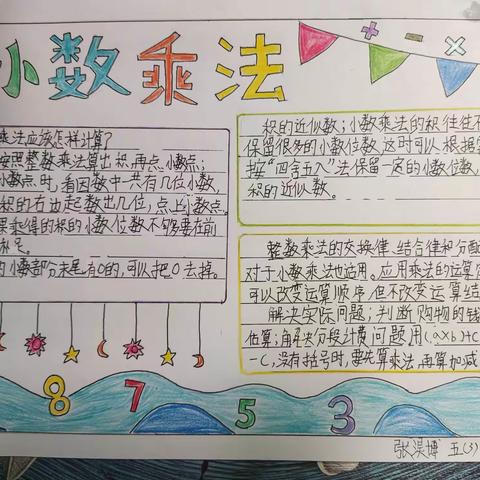 小数乘法
+ - ×
乘法应该怎样计算?
按照整数乘法算出积,再点小数点;
小数点时,看因数中共有几位小数,
积的右边起数出几位,点上小数点。
果乘得的积的小数位数不够要在前
补足。
的小数部分末尾有0的,可以把0去掉。
积的近似数;小数乘法的积往往不
保留很多的小数位数这时可以根据
按"四舍五入"法保留一定的小数位数,
积的近似数。
整数乘法的交换律、结合律和分配
对于小数乘法也适用。应用乘法的运算
可以改变运算顺序,但不改变运算结
解决实际问题;判断购物的钱
估算;解决分段计费问题用(a×b)+c
-C,没有括号时,要先算乘法,再算加减
8 7 5 3
张淏博 五(3)